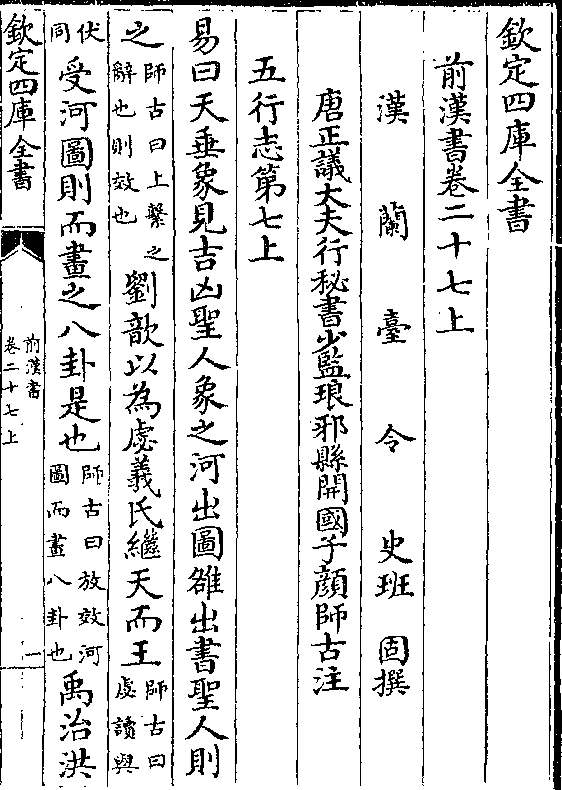 欽定四庫全書
前漢書卷二十七上
漢蘭臺令史班固撰
唐正議大夫行秘書少監琅邪縣開國子顔師古注
五行志第七上
易曰天垂象見吉凶聖人象之河出圖雒出書聖人則
之師古曰上繫之辭也則效也劉歆以為虙羲氏繼天而王師古曰虙讀與
伏同受河圖則而畫之八卦是也師古曰放效河圖而畫八卦也禹治洪
欽定四庫全書
前漢書
卷二十七上
一